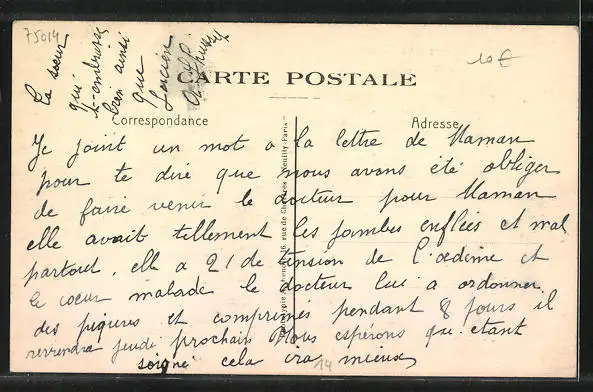 75014
10€
Ta soeur
qui
t'embrasse
bien ainsi
que
Lucien
CARTE POSTALE
Correspondance
Adresse
Je joint un mot a la lettre de Maman
pour te dire que nous avons été obliger
de faire venir le docteur pour Maman
elle avait tellement les jambes enflées et mal
partout. elle a 21 de tension de l'œdime et
le coeur malade le docteur lui a ordonner
des piqures et comprimés pendant 8 jours il
reviendra jeudi prochain Nous espérons que étant
soigné cela ira mieux
14